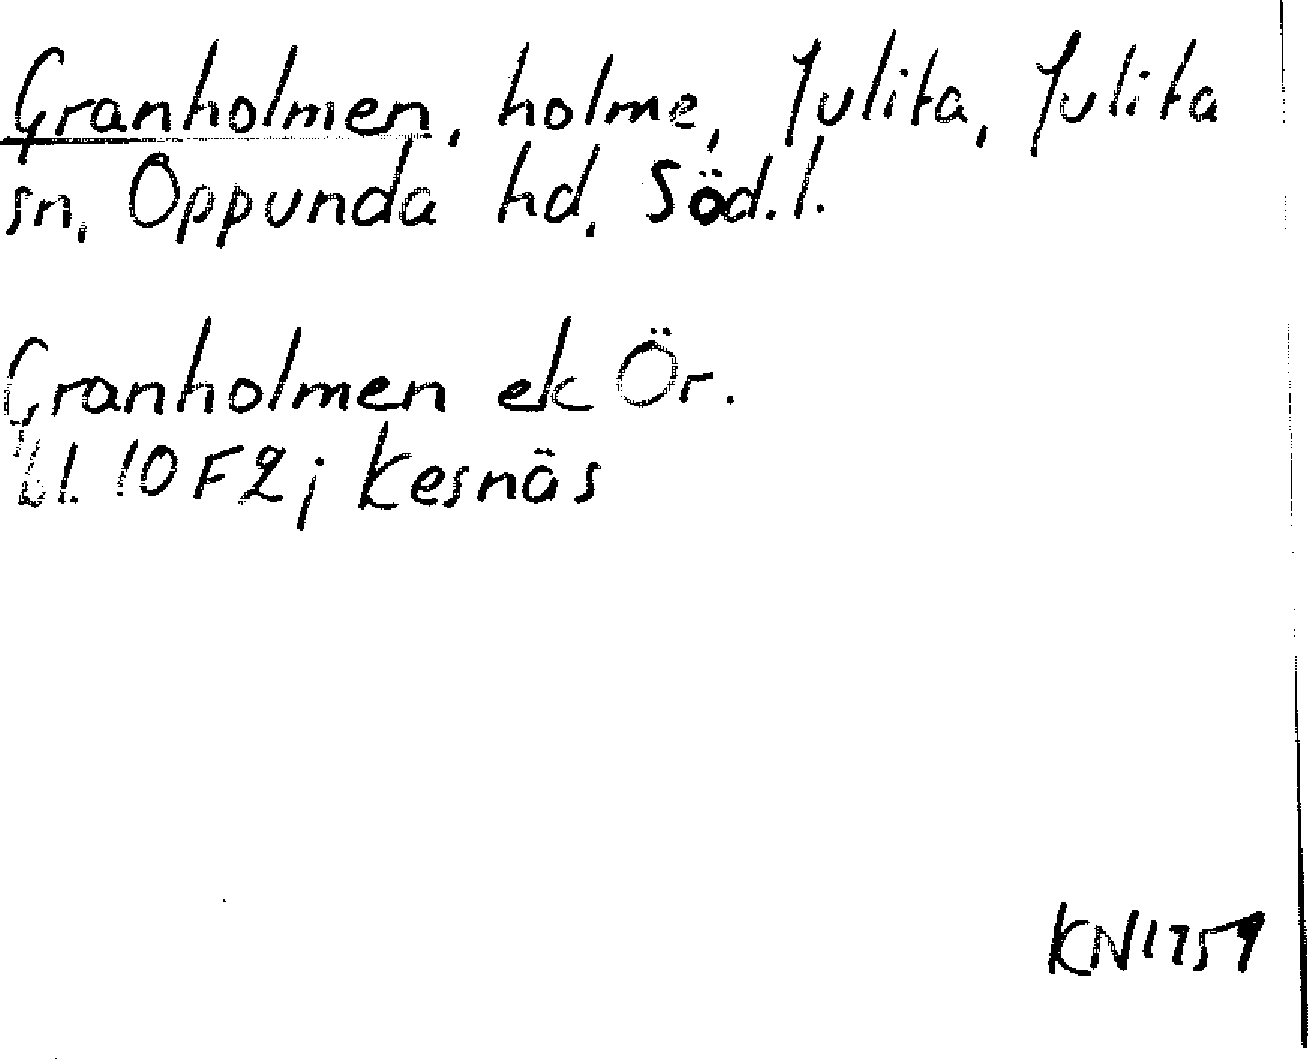 Granholmen, holme, Julita, Julita
sn, Oppunda hd, Söd.l.
Granholmen ek Ör.
bl. 10F2j Kesnäs
KN1759